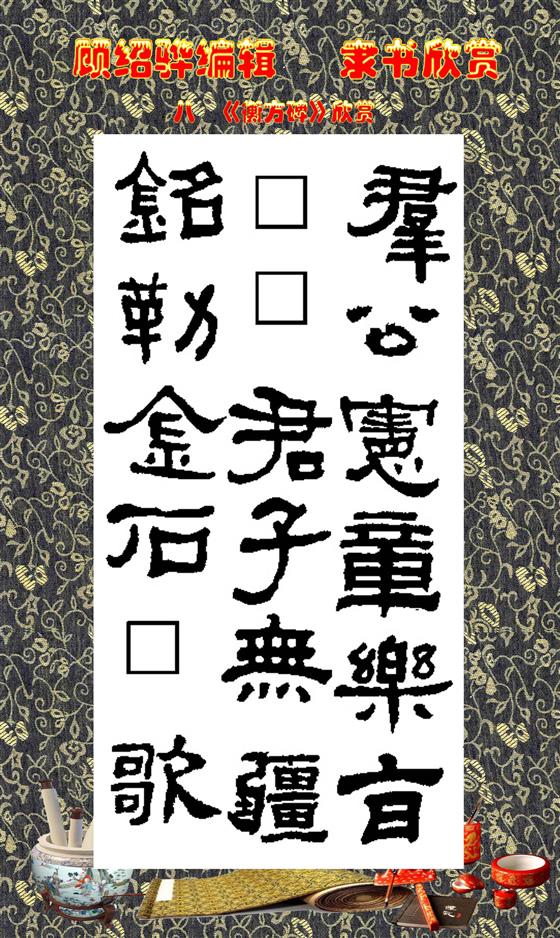 顾绍骅编辑 隶书欣赏
八 《衡方碑》欣赏
羣公憲章樂旨
□□君子無疆
銘勒金石□歌